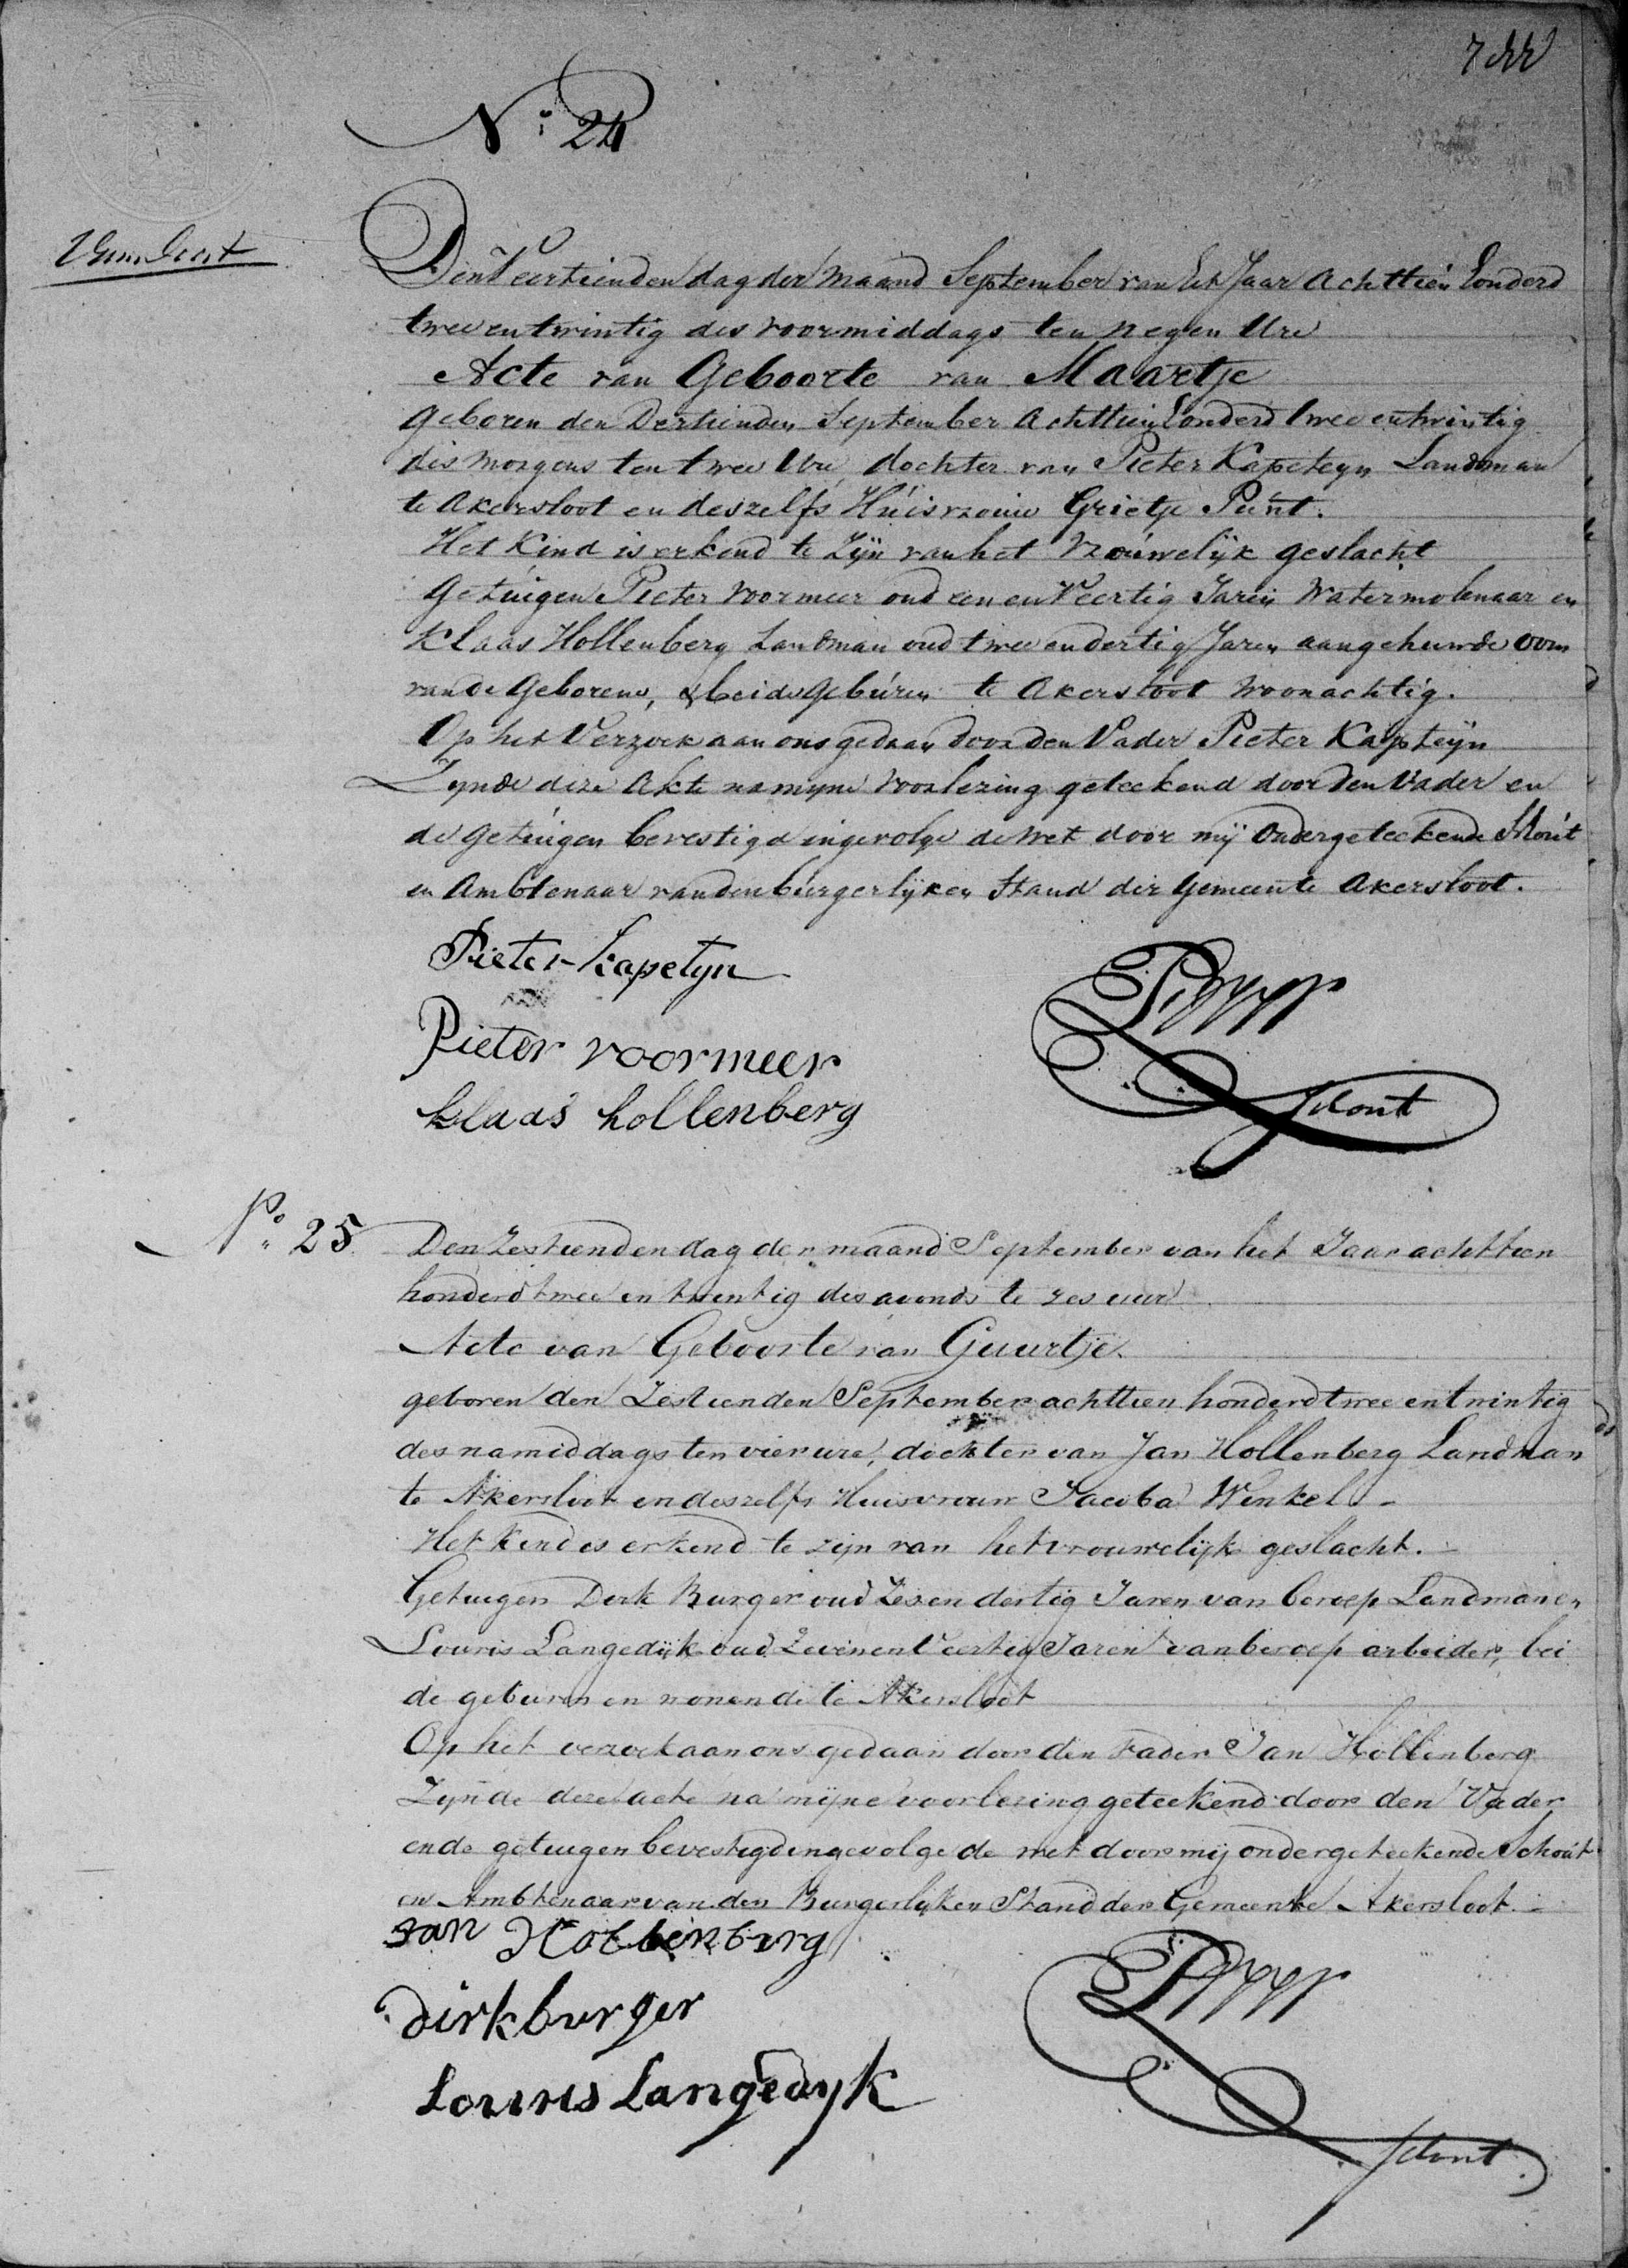 N.o 24
Den Veertienden dag der Maand September van het Jaar Achttien honderd
twee en twintig des voormiddags ten negen Ure
Acte van Geboorte van Maartje
geboren den Dertienden September Achttien honderd twee en twintig
des morgens ten twee Ure, dochter van Pieter Kapeteyn Landman
te Akersloot en deszelfs Huisvrouw Grietje Punt.
Het Kind is erkend te Zijn van het Vrouwelijk geslacht
Getuigen Pieter Voormeer oud een en Veertig Jaren Watermolenaar en
Klaas Hollenberg Landman oud twee en dertig Jaren aangehuwde oom
van de Geborene, & beide Geburen te Akersloot woonachtig.
Op het Verzoek aan ons gedaan door den Vader Pieter Kapteijn
Zynde deze Akte na myne Voorlezing geteekend door den Vader en
de Getuigen bevestigd ingevolge de Wet door mij Ondergeteekende Schout
en Ambtenaar van den burgerlijken Stand der Gemeente Akersloot.
Pieter Kapetyn
Pieter voormeer
klaas hollenberg
Schout
N.o 25
Den Zestienden dag der maand September van het Jaar achttien
honderd twee en twentig des avonds te zes uur
Acte van Geboorte van Guurtje.
geboren den Zestienden September achttien honderd twee en twintig
des namiddags ten vier ure, dochter van Jan Hollenberg Landman
te Akersloot en deszelfs Huisvrouw Jacoba Winkel -
Het kind is erkend te zijn van het vrouwelijk geslacht. -
Getuigen Dirk Burger oud Zes en dertig Jaren van beroep Landman en
Louris Langedijk oud Zeven en Veertig Jaren van beroep arbeider, bei
de geburen en wonende te Akersloot
Op het verzoek aan ons gedaan door den Vader Jan Hollenberg
Zynde deze acte na mijne voorlezing geteekend door den Vader
en de getuigen bevestigd ingevolge de wet door mij ondergeteekende Schout
en Ambtenaar van den Burgerlijken Stand der Gemeente Akersloot. -
Jan Hollenberg
Dirk burger
Louris Langedyk
Schout